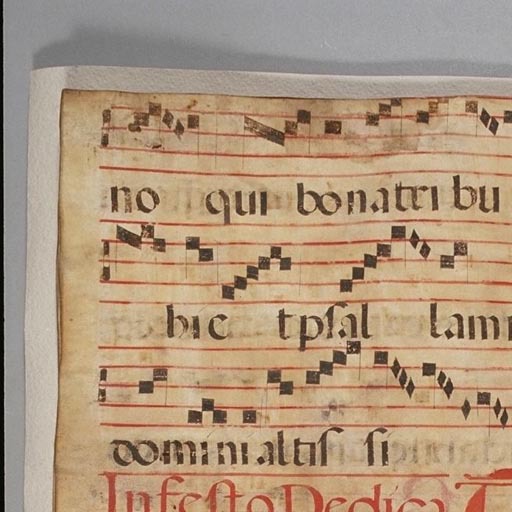 no qui bona tri bu
bi c t psal lam
domini altis si
In festo Dedica